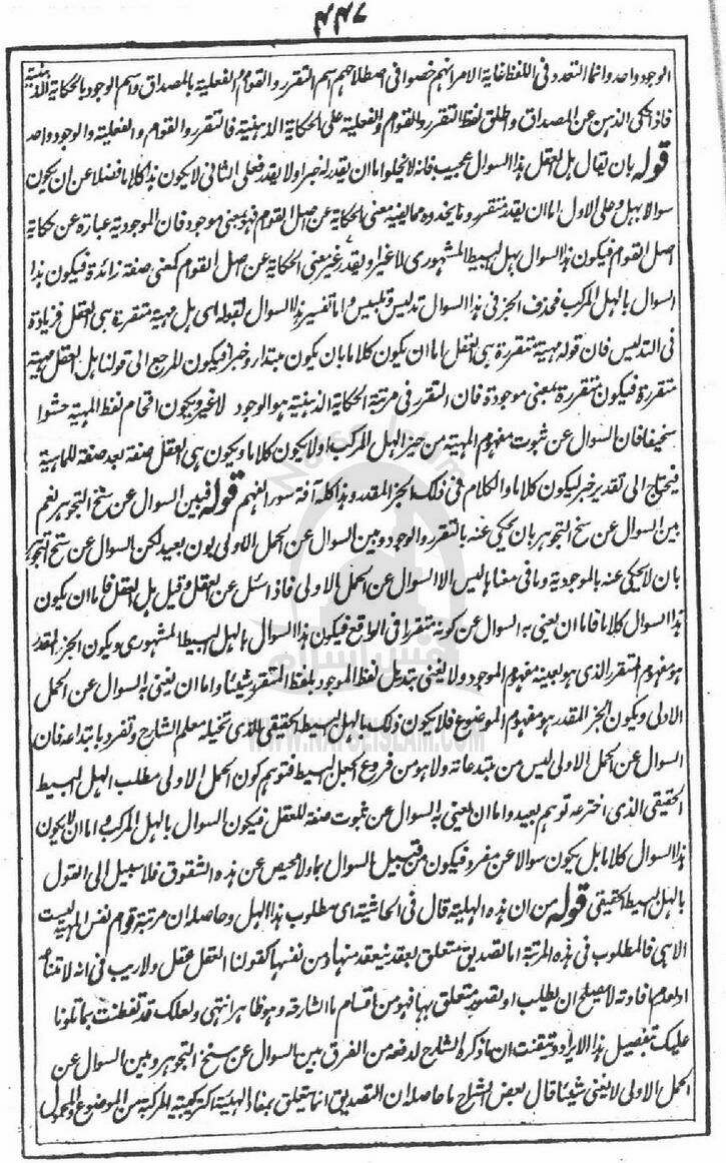 ۴۴۷
الوجود واحد وانما التعدد فی اللفظ غایة الامر انهم خصوا فی اصطلاحهم اسم التقرر والقوام والفعلیة بالمصداق واسم الوجود بالحکایة الذهنیة
فاذا حکی الذهن عن المصداق واطلق لفظ التقرر والقوام والفعلیة علی الحکایة الذهنیة فالتقرر والقوام والفعلیة والوجود واحد
قوله بان یقال هل العقل هذا السوال عجیب فانه لا یخلو اما ان یقدر له خبر اولا یقدر فعلی الثانی لا یکون هذا کلاما فضلا عن ان یکون
سوالا بهل وعلی الاول اما ان یقدر متقرر وما یحذوه مما یفید معنی الحکایة عن اصل القوام فهو بمعنی موجود فان الموجودیة عبارة عن حکایة
اصل القوام فیکون هذا السوال بهل البسیط المشهوری لا غیر او یقدر غیر معنی الحکایة عن اصل القوام کمعنی صفة زائدة فیکون هذا
السوال بالهل المرکب فحذف الخبر فی هذا السوال تدلیس وتلبیس واما تفسیر هذا السوال بقوله ای هل مهیة متقررة هی العقل فزیادة
فی التدلیس فان قوله مهیة متقررة هی العقل اما ان یکون کلاما بان یکون مبتدأ وخبرا فیکون المرجع الی قولنا هل العقل مهیة
متقررة فیکون متقررة بمعنی موجودة فان التقرر فی مرتبة الحکایة الذهنیة هو الوجود لا غیر ویکون اقحام لفظ المهیة حشوا
سخیفا فان السوال عن ثبوت مفهوم المهیة من حیز الهل المرکب اولا یکون کلاما ویکون هی العقل صفة بعد صفة للماهیة
فیحتاج الی تقدیر خبر لیکون کلاما والکلام فی ذلک الخبر المقدر وهذا کله آفة سوء الفهم قوله فبین السوال عن سنخ التجوهر نعم
بین السوال عن سنخ التجوهر بان یحکی عنه بالتقرر والوجود وبین السوال عن الحمل الاولی بون بعید لکن السوال عن سنخ التجوهر
بان لا یحکی عنه بالموجودیة وما فی معناها لیس الا السوال عن الحمل الاولی فاذا سئل عن العقل وقیل هل العقل فاما ان یکون
هذا السوال کلاما فاما ان یعنی به السوال عن کونه متقررا فی الواقع فیکون هذا السوال بالهل البسیط المشهوری ویکون الخبر المقدر
هو مفهوم المتقرر الذی هو بعینه مفهوم الموجود ولا یغنی تبدیل لفظ الموجود بلفظ المتقرر شیئا واما ان یعنی به السوال عن الحمل
الاولی ویکون الخبر المقدر هو مفهوم الموضوع فلا یکون ذلک بالهل البسیط الحقیقی الذی تخیله معلم الشارح وتفرد بابتداعه فان
السوال عن الحمل الاولی لیس من مبتدعاته ولا هو من فروع الجعل البسیط فتوهم کون الحمل الاولی مطلب الهل البسیط
الحقیقی الذی اخترعه توهم بعید واما ان یعنی به السوال عن ثبوت صفة للعقل فیکون السوال بالهل المرکب واما ان لا یکون
هذا السوال کلاما بل یکون سوالا عن مفرد فیکون من قبیل السوال بما ولا محیص عن هذه الشقوق فلا سبیل الی القول
بالهل البسیط الحقیقی قوله من ان هذه الهلیة قال فی الحاشیة ای مطلوب هذا الهل وحاصله ان مرتبة قوام نفس المهیة لیست
الا هی فالمطلوب فی هذه المرتبة اما تصدیق متعلق بعقد منعقد منها ومن نفسها کقولنا العقل عقل ولا ریب فی انه لا
او لعدم افادته لا یصلح ان یطلب او تصور متعلق بها فهو من اقسام ما الشارحة وهو ظاهر انتهی ولعلک قد تفطنت بما تلونا
علیک تفصیل هذا الایراد وتیقنت ان ما ذکره الشارح لدفعه من الفرق بین السوال عن سنخ التجوهر وبین السوال عن
الحمل الاولی لا یغنی شیئا قال بعض الشراح ما حاصله ان التصدیق انما یتعلق بمفاد الهیئة الترکیبیة المرکبة من الموضوع والمحمول
نفس اسلام
WWW.NAFSEISLAM.COM